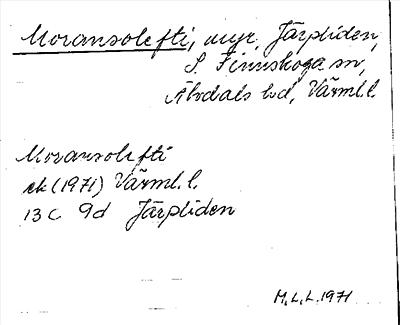 Moransolefti, myr, Järpliden,
S. Finnskoga sn,
Älvdals hd, Värml. l.
Moransolefti
ek (1971) Värml. l.
13 C 9d Järpliden
M. L. L. 1971